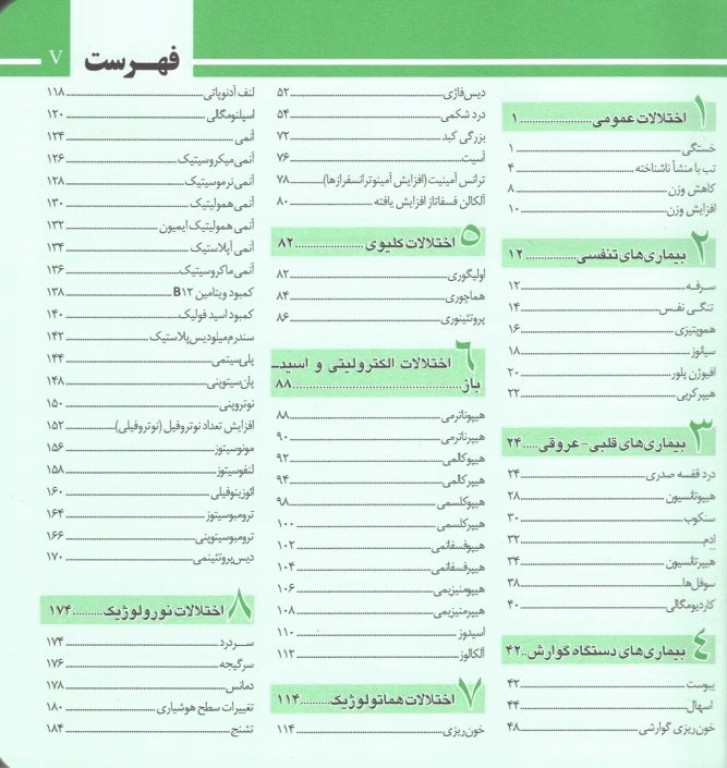 فهرست
۷
۱ اختلالات عمومی ۱
خستگی ۱
تب با منشأ ناشناخته ۴
کاهش وزن ۸
افزایش وزن ۱۰
۲ بیماری‌های تنفسی ۱۲
سرفه ۱۲
تنگی نفس ۱۴
هموپتیزی ۱۶
سیانوز ۱۸
افیوژن پلور ۲۰
هیپرکربی ۲۲
۳ بیماری‌های قلبی - عروقی ۲۴
درد قفسه صدری ۲۴
هیپوتانسیون ۲۸
سنکوپ ۳۰
اِدِم ۳۲
هیپرتانسیون ۳۴
سوفل‌ها ۳۸
کاردیومگالی ۴۰
۴ بیماری‌های دستگاه گوارش ۴۲
یبوست ۴۲
اسهال ۴۴
خون‌ریزی گوارشی ۴۸
دیس‌فاژی ۵۲
درد شکمی ۵۴
بزرگی کبد ۷۲
آسیت ۷۶
ترانس آمینیت (افزایش آمینوترانسفرازها) ۷۸
آلکالن فسفاتاز افزایش یافته ۸۰
۵ اختلالات کلیوی ۸۲
اولیگوری ۸۲
هماچوری ۸۴
پروتئینوری ۸۶
۶ اختلالات الکترولیتی و اسید-
باز ۸۸
هیپوناترمی ۸۸
هیپرناترمی ۹۰
هیپوکالمی ۹۲
هیپرکالمی ۹۴
هیپوکلسمی ۹۸
هیپرکلسمی ۱۰۰
هیپوفسفاتمی ۱۰۲
هیپرفسفاتمی ۱۰۴
هیپومنیزیمی ۱۰۶
هیپرمنیزیمی ۱۰۸
اسیدوز ۱۱۰
آلکالوز ۱۱۲
۷ اختلالات هماتولوژیک ۱۱۴
خون‌ریزی ۱۱۴
لنف آدنوپاتی ۱۱۸
اسپلنومگالی ۱۲۰
آنمی ۱۲۴
آنمی میکروسیتیک ۱۲۶
آنمی نرموسیتیک ۱۲۸
آنمی همولیتیک ۱۳۰
آنمی همولیتیک ایمیون ۱۳۲
آنمی آپلاستیک ۱۳۴
آنمی ماکروسیتیک ۱۳۶
کمبود ویتامین B۱۲ ۱۳۸
کمبود اسید فولیک ۱۴۰
سندرم میلودیس‌پلاستیک ۱۴۲
پلی‌سیتمی ۱۴۴
پان‌سیتوپنی ۱۴۸
نوتروپنی ۱۵۰
افزایش تعداد نوتروفیل (نوتروفیلی) ۱۵۲
مونوسیتوز ۱۵۶
لنفوسیتوز ۱۵۸
ائوزینوفیلی ۱۶۰
ترومبوسیتوز ۱۶۴
ترومبوسیتوپنی ۱۶۶
دیس‌پروتئینمی ۱۷۰
۸ اختلالات نورولوژیک ۱۷۴
سردرد ۱۷۴
سرگیجه ۱۷۶
دمانس ۱۷۸
تغییرات سطح هوشیاری ۱۸۰
تشنج ۱۸۴